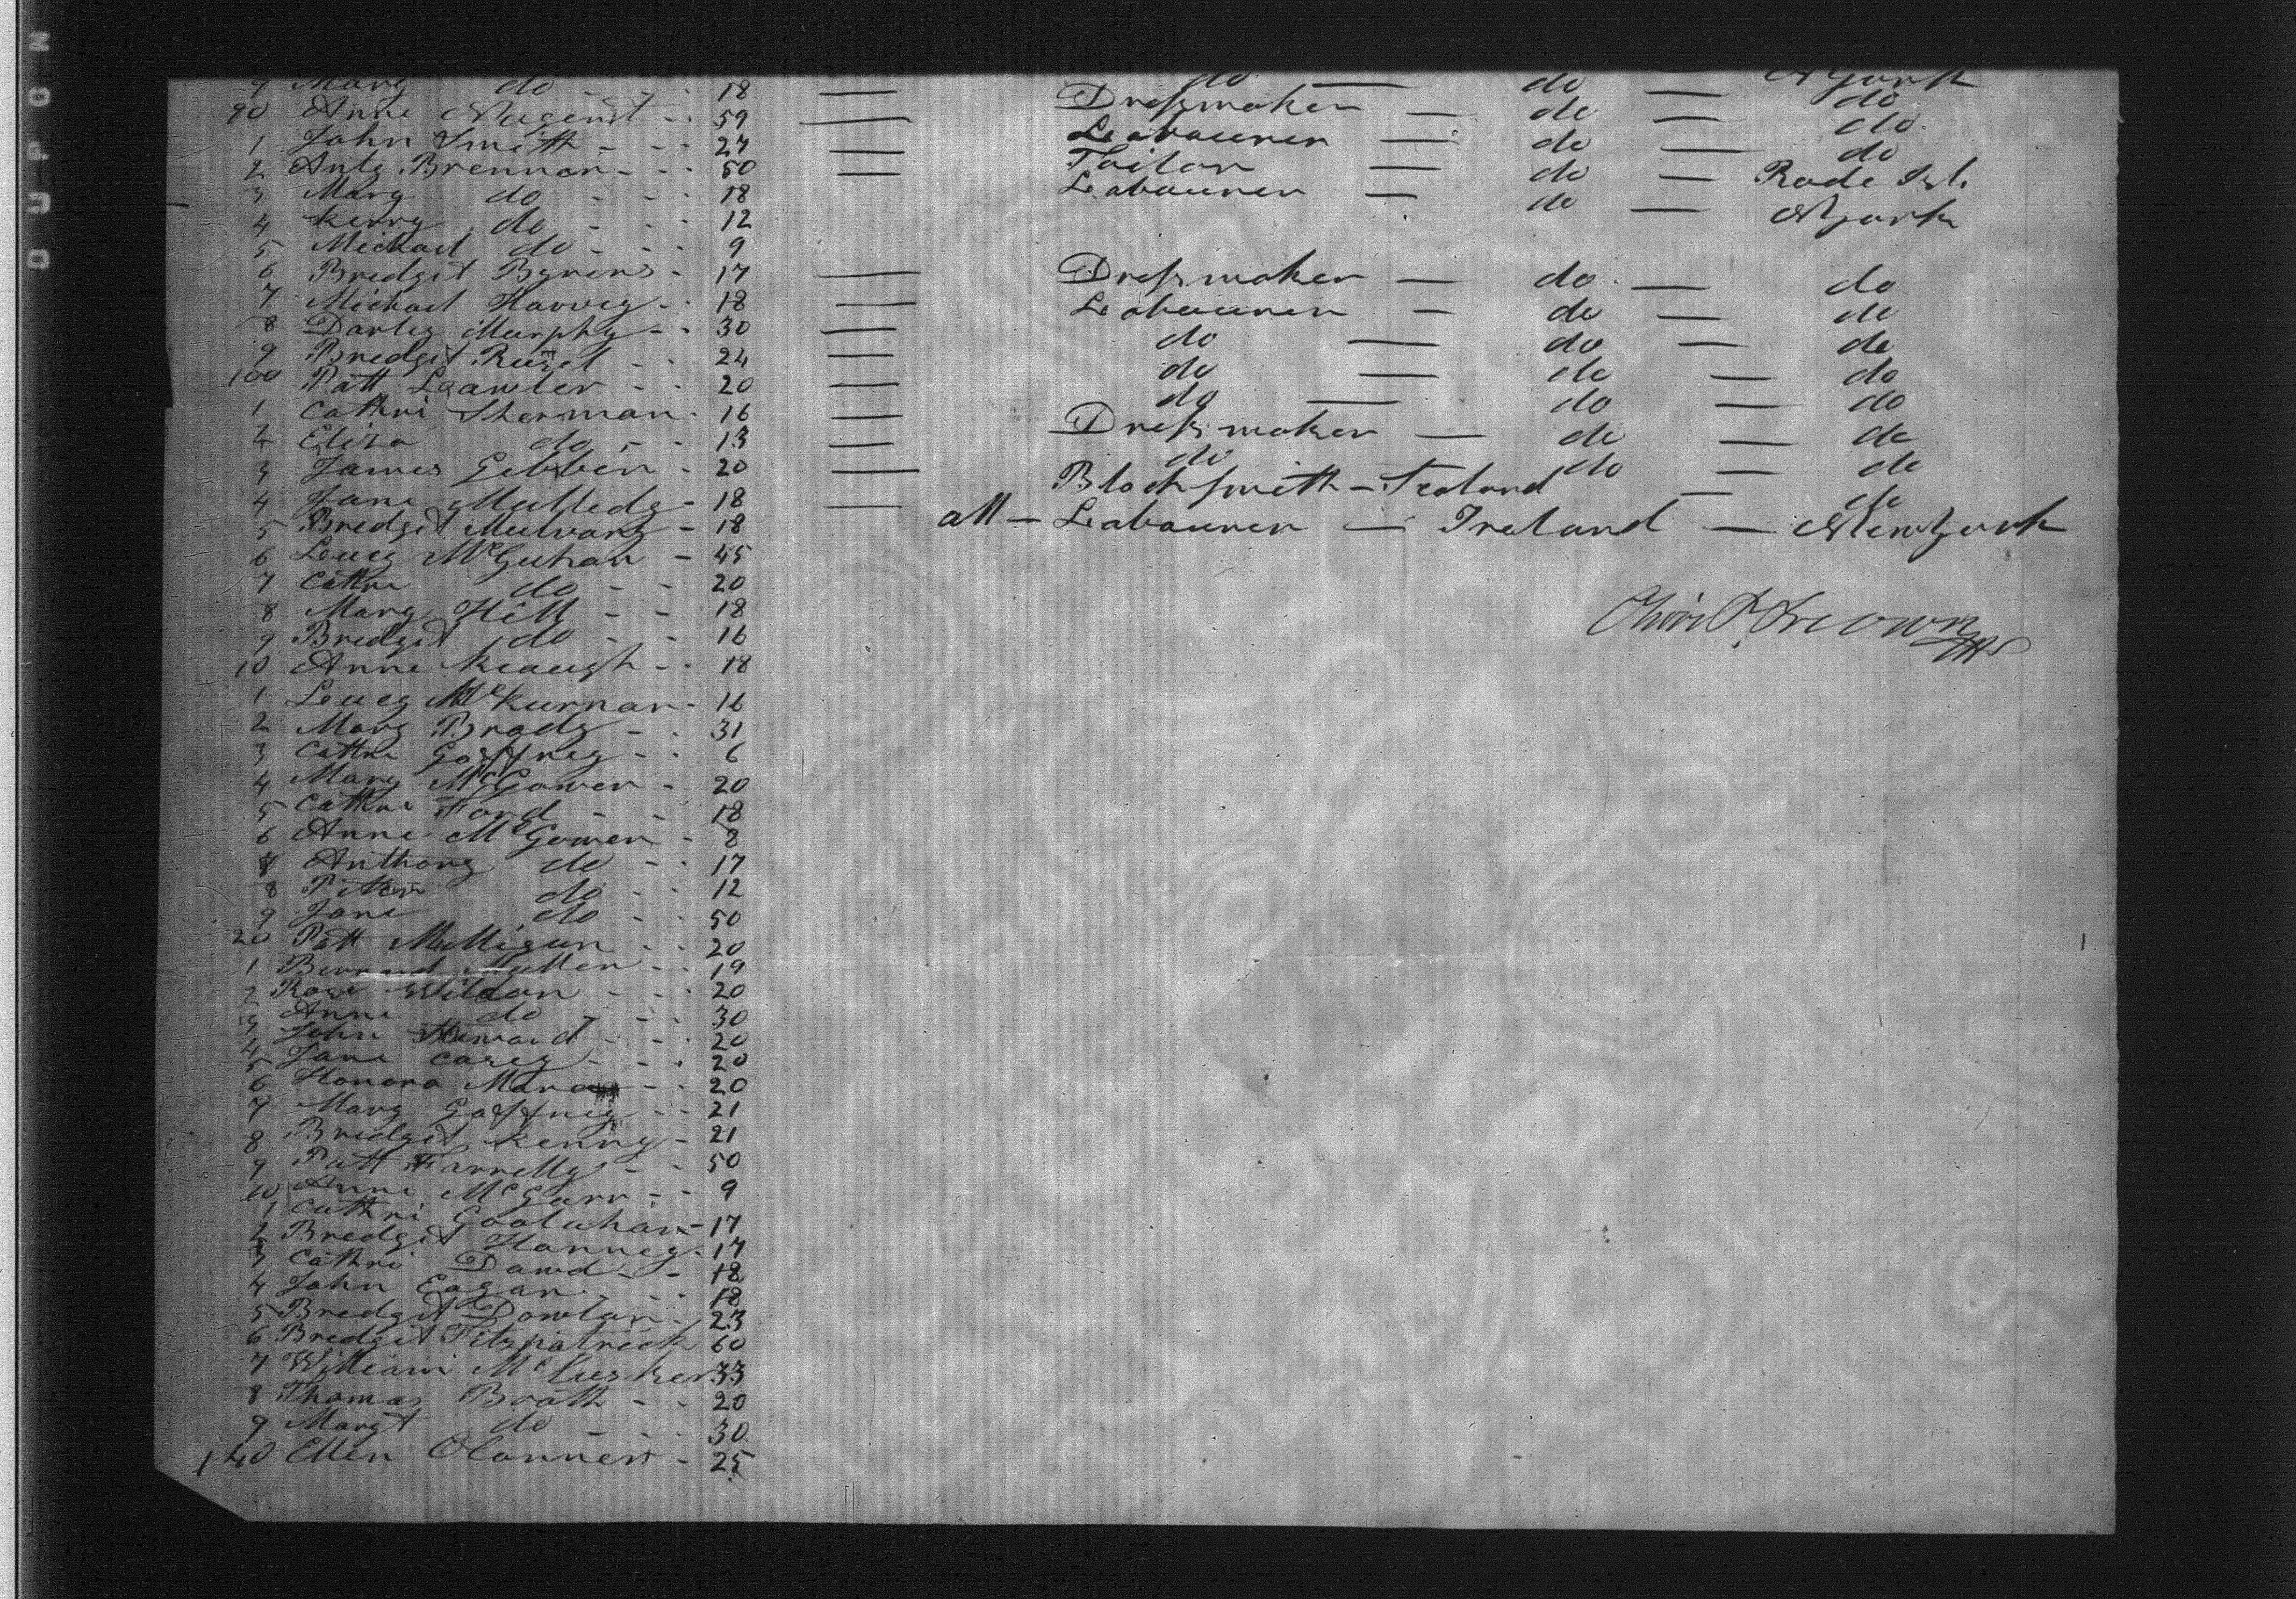 9 Mary do - - 18 — do — do — NYork
90 Anne Nugent - - 59 — Dressmaker — do — do
1 John Smith - - - 24 — Labourer — do — do
2 Anty Brennan - - - 50 — Tailor — do — do
3 Mary do - - - 18 Labourer — do — Rode Isl.
4 Kerry do - - - 12 do — NYork
5 Michael do - - - 9
6 Bredgit Byrens - 17 — Dressmaker — do — do
7 Michael Harvey - - 18 — Labourer — do — do
8 Darley Murphy - - 30 — do — do — do
9 Bredgit - - 24 — do — do — do
100 Patt Lawler - - 20 — do — do — do
1 Cathri Sherman - 16 — Dressmaker — do — do
2 Eliza do - - 13 — do do — do
3 James Gebben - 20 — Blacksmith - Ireland — do
4 Jane - 18 — all - Labourer — Ireland — New York
5 Bredgit Mulvany - 18
6 Leucy McGuhan - 45
7 Cathri do - - 20
8 Mary Hill - - 18
9 Bredgit do - - 16
10 Anne Keaugh - - 18
1 Leucy McKurnan - 16
2 Mary Brady - - 31
3 Cathri Gaffney - - 6
4 Mary McGowen - 20
5 Cathri Ford - - 18
6 Anne McGowen - 8
7 Anthony do - - 17
8 Peter do - - 12
9 Jane do - - 50
20 Patt Mulligan - - 20
1 Bernard Mullen - - 19
2 Rose - - - 20
3 Anne do - - - 30
4 John - - - 20
5 Jane Casey - - - 20
6 Honora - - 20
7 Mary Gaffney - - 21
8 Bredgit Kenny - 21
9 Patt Farrelly - - 50
10 Anne McGarr - - 9
1 Cathri - 17
2 Bredgit Hanney - 17
3 Cathri Dawd - - 18
4 John Eagan - - 18
5 Bredgit Dowlan - 23
6 Bredgit Fitzpatrick 60
7 William McCusker 33
8 Thomas Brath - - 20
9 Margt do - - - 30
140 Ellen OConners - 25
DUPON